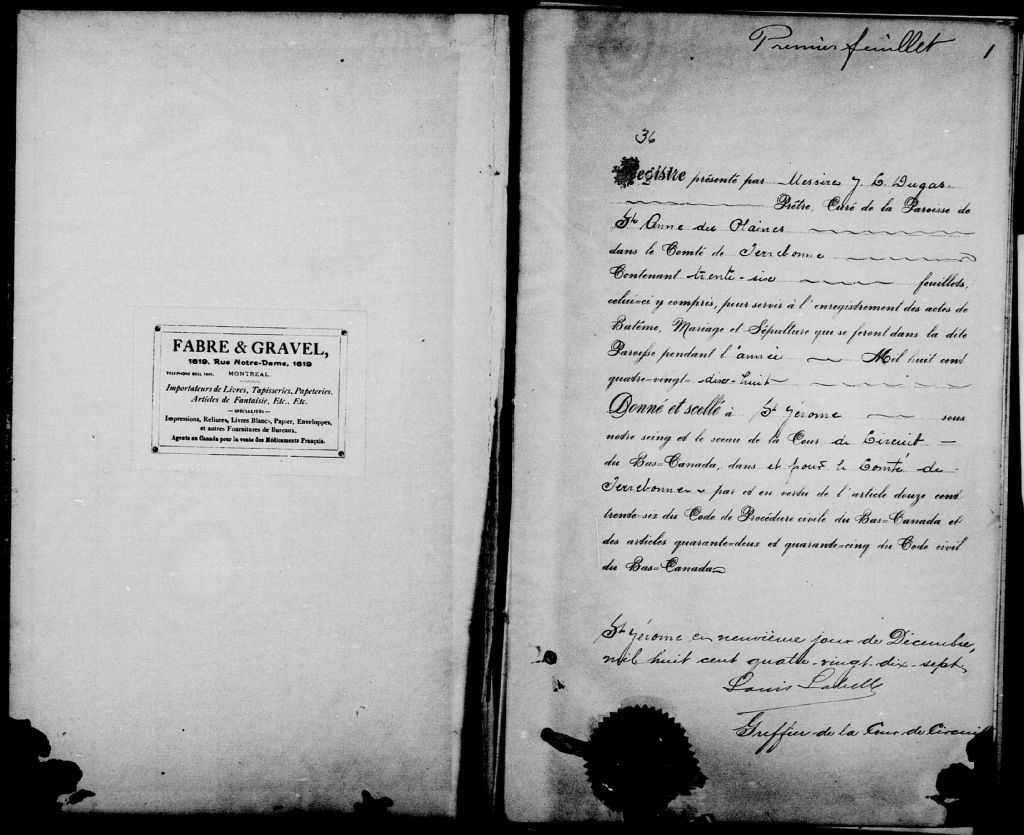 FABRE & GRAVEL,
1619, Rue Notre-Dame, 1619
MONTREAL.
Importateurs de Livres, Tapisseries, Papeteries,
Articles de Fantaisie, Etc., Etc.
— SPÉCIALITÉS —
Impressions, Reliures, Livres Blancs, Papier, Enveloppes,
et autres Fournitures de Bureaux.
Agents au Canada pour la vente des Médicaments Français.
Premier feuillet 1
36
Registre présenté par Messire J. C. Dugas.
Prêtre, Curé de la Paroisse de
Ste Anne des Plaines
dans le Comté de Terrebonne
Contenant trente-six feuillets,
celui-ci y compris, pour servir à l'enregistrement des actes de
Batême, Mariage et Sépulture qui se feront dans la dite
Paroisse pendant l'année Mil huit cent
quatre-vingt-dix-huit
Donné et scellé à St Jérome sous
notre seing et le sceau de la Cour de Circuit
du Bas-Canada, dans et pour le Comté de
Terrebonne par et en vertu de l'article douze cent
trente-six du Code de Procédure civile du Bas-Canada et
des articles quarante-deux et quarante-cinq du Code civil
du Bas-Canada
St Jérome ce neuvième jour de Décembre,
mil huit cent quatre-vingt-dix-sept
Louis Labelle
Greffier de la Cour de Circuit